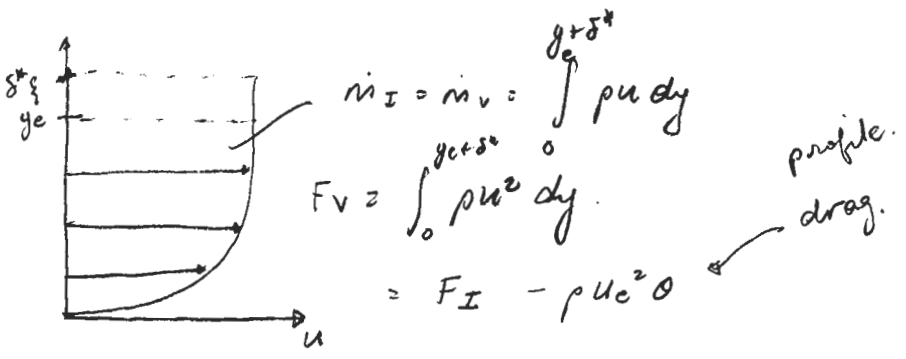 δ* {
ye
u
ṁ_I = ṁ_v = ∫_0^{ye+δ*} ρu dy
F_v = ∫_0^{ye+δ*} ρu² dy.
= F_I - ρu_e²θ
profile.
drag.